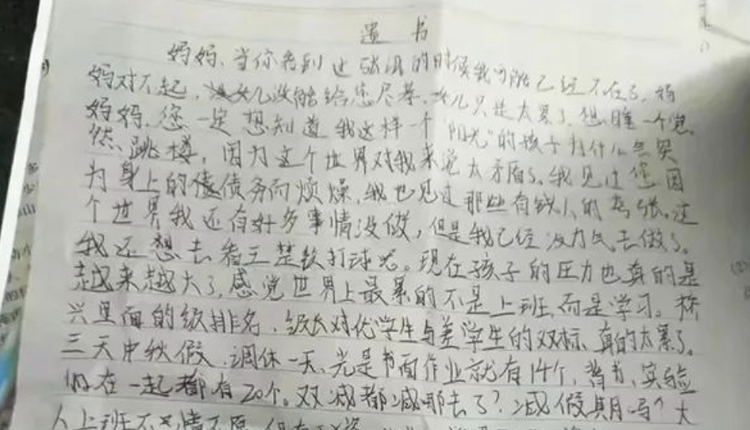 遗书
妈妈,当你看到这张纸的时候我可能已经不在了,妈
妈对不起,女儿没能给您尽孝,女儿只是太累了想睡一个觉
妈妈,您一定想知道我这样一个"阳光"的孩子为什么会突
然跳楼,因为这个世界对我来说太矛盾了。我见过您因
为身上的债务而烦燥,我也见过那些有钱人的嚣张。这
个世界我还有好多事情没做,但是我已经没力气去做了。
我还想去看王楚钦打球呢。现在孩子的压力也真的是
越来越大了,感觉世界上最累的不是上班,而是学习。
兴里面的级排名,级长对优学生与差学生的双标,真的太累了。
三天中秋假,调休一天,光是书面作业就有14个,背书、实验
加在一起都有20个。双减都减哪去了?减假期吗?大
人上班不